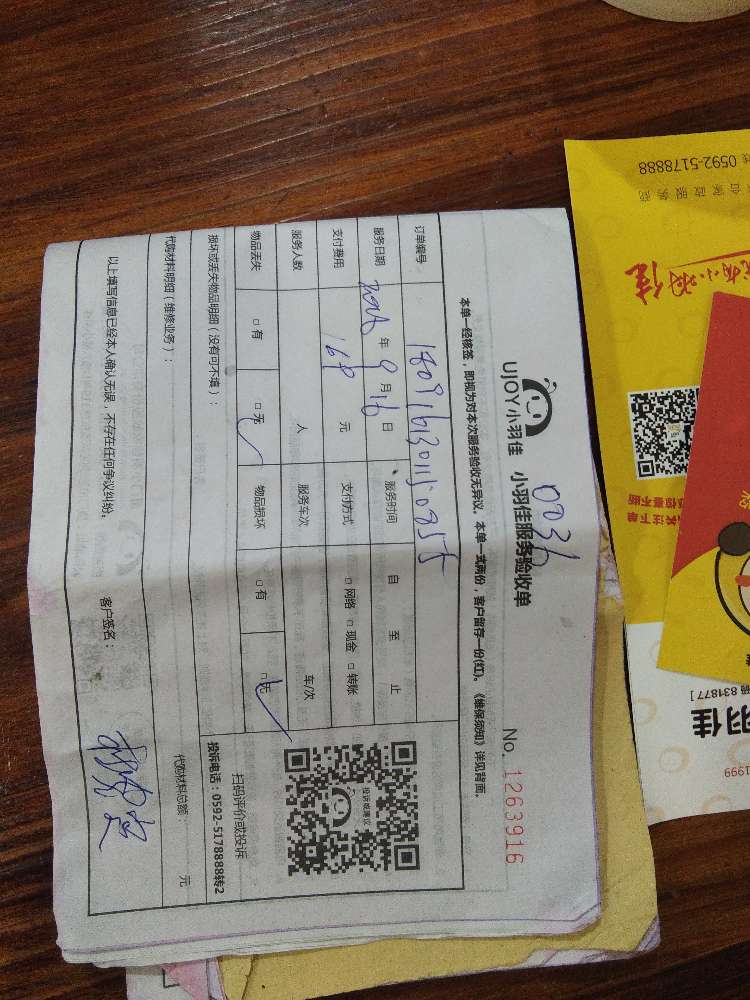 UJOY小羽佳 小羽佳服务验收单
No. 1263916
本单一经核签，即视为对本次服务验收无异议。本单一式两份，客户留存一份(红)。《维保须知》详见背面。
订单编号
服务日期 年 9 月 16 日 服务时间 自 至 止
支付费用 168 元 支付方式 □ 网络 □ 现金 □ 转账
服务人数 人 服务车次 车/次
物品丢失 □ 有 □ 无 物品损坏 □ 有 □ 无
投诉或建议
扫码评价或投诉
投诉电话：0592-5178888转2
损坏或丢失物品明细（没有可不填）：
代购材料明细（维修业务）：
代购材料总额： 元
以上填写信息已经本人确认无误，不存在任何争议纠纷。
客户签名：
0592-5178888
合家政服务商
小羽佳
关注下单
惊喜不断
831877 ]
羽佳
1999